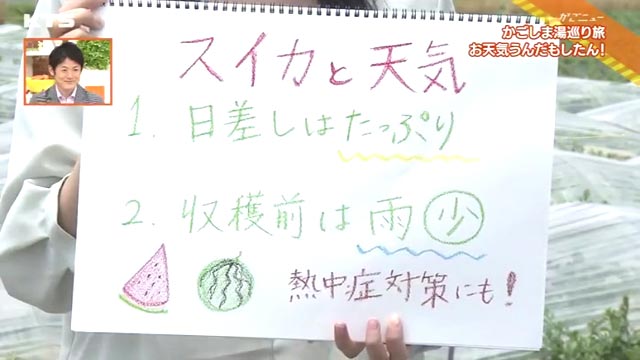 KTS
かごニュー
かごしま湯巡り旅
お天気うんだもしたん!
スイカと天気
1. 日差しはたっぷり
2. 収穫前は雨少
熱中症対策にも!